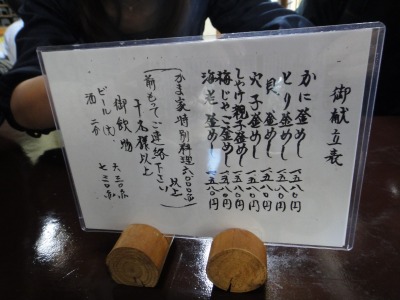 御献立表
かに釜めし 一、五八〇円
とり釜めし 一、五八〇円
貝 釜めし 一、五八〇円
穴子釜めし 一、五八〇円
しゃけ親子釜めし 一、五八〇円
梅じゃこ釜めし 一、五八〇円
海老釜めし 一、五八〇円
かま家特別料理 六〇〇〇円以上
十名様以上
前もってご連絡下さい
御飲物
ビール(大) 六三〇円
酒 二合 七三〇円